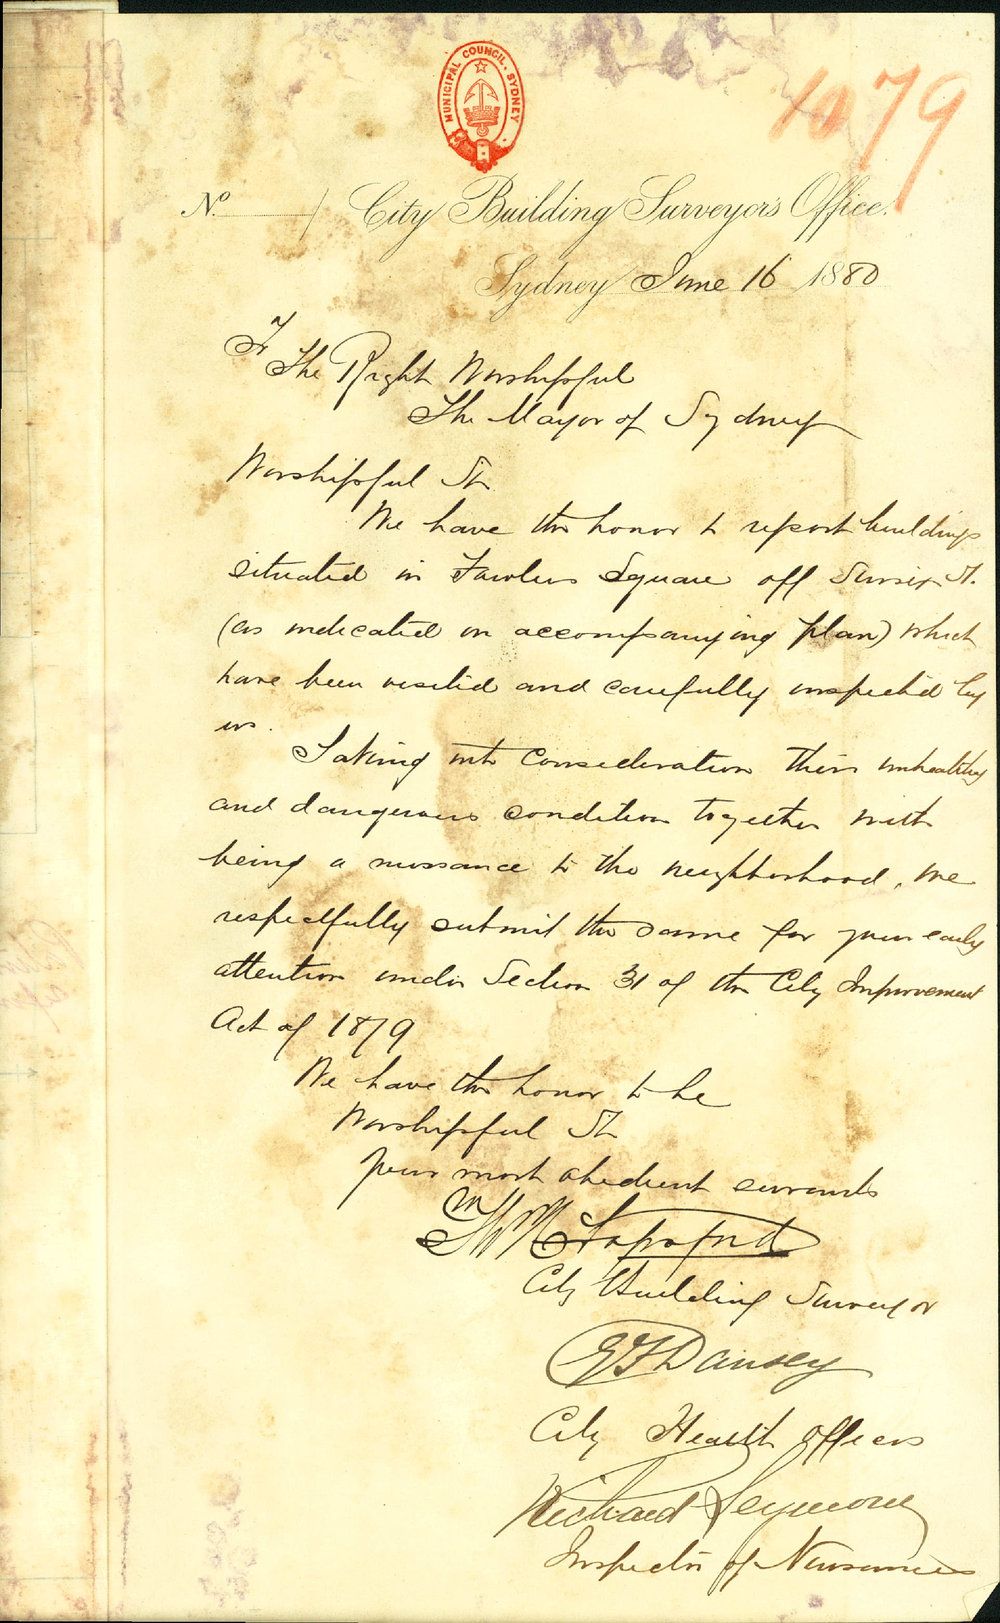 MUNICIPAL COUNCIL. SYDNEY
1079
No. / City Building Surveyor's Office.
Sydney June 16 1880
To
The Right Worshipful
The Mayor of Sydney
Worshipful Sir
We have the honor to report buildings
situated in Fowlers Square off Sussex St.
(as indicated on accompanying plan) which
have been visited and carefully inspected by
us.
Taking into consideration their unhealthy
and dangerous condition together with
being a nuisance to the neighborhood, we
respectfully submit the same for your early
attention under Section 31 of the City Improvement
Act of 1879
We have the honor to be
Worshipful Sir
your most obedient servants
City Building Surveyor
G F Dansey
City Health Officer
Richard Seymour
Inspector of Nuisances